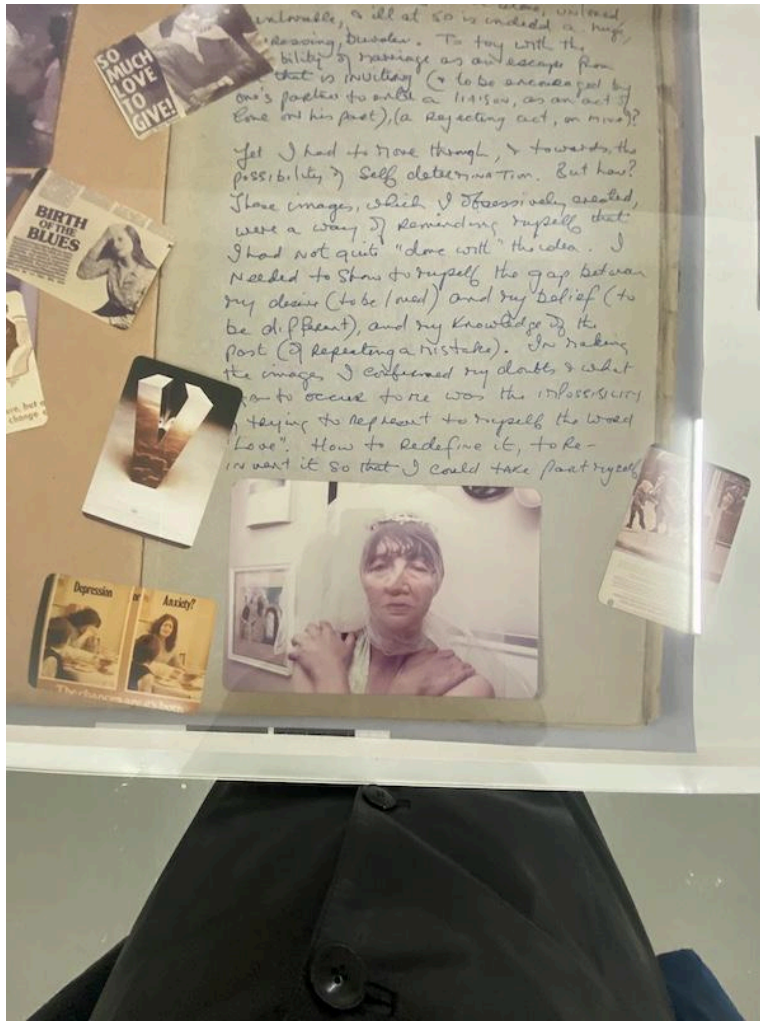 SO
MUCH
LOVE
TO
GIVE!
BIRTH
OF THE
BLUES
change
Depression
or
Anxiety?
The chances are it's both
& ill at so is indeed a huge,
burden. To toy with the
bility of marriage as an escape from
that is inviting (& to be encouraged by
one's partner to a liaison, as an act of
love on his part), (a rejecting act, on mine)?
Yet I had to move through, & towards, the
possibility of self determination. But how?
These images, which I obsessively created,
were a way of reminding myself that
I had not quite "done with" the idea. I
needed to show to myself the gap between
my desire (to be loved) and my belief (to
be different), and my knowledge of the
past (of repeating a mistake). In making
the images I confirmed my doubts & what
to occur to me was the impossibility
trying to represent to myself the word
"Love". How to redefine it, to re-
invent it so that I could take part myself
V